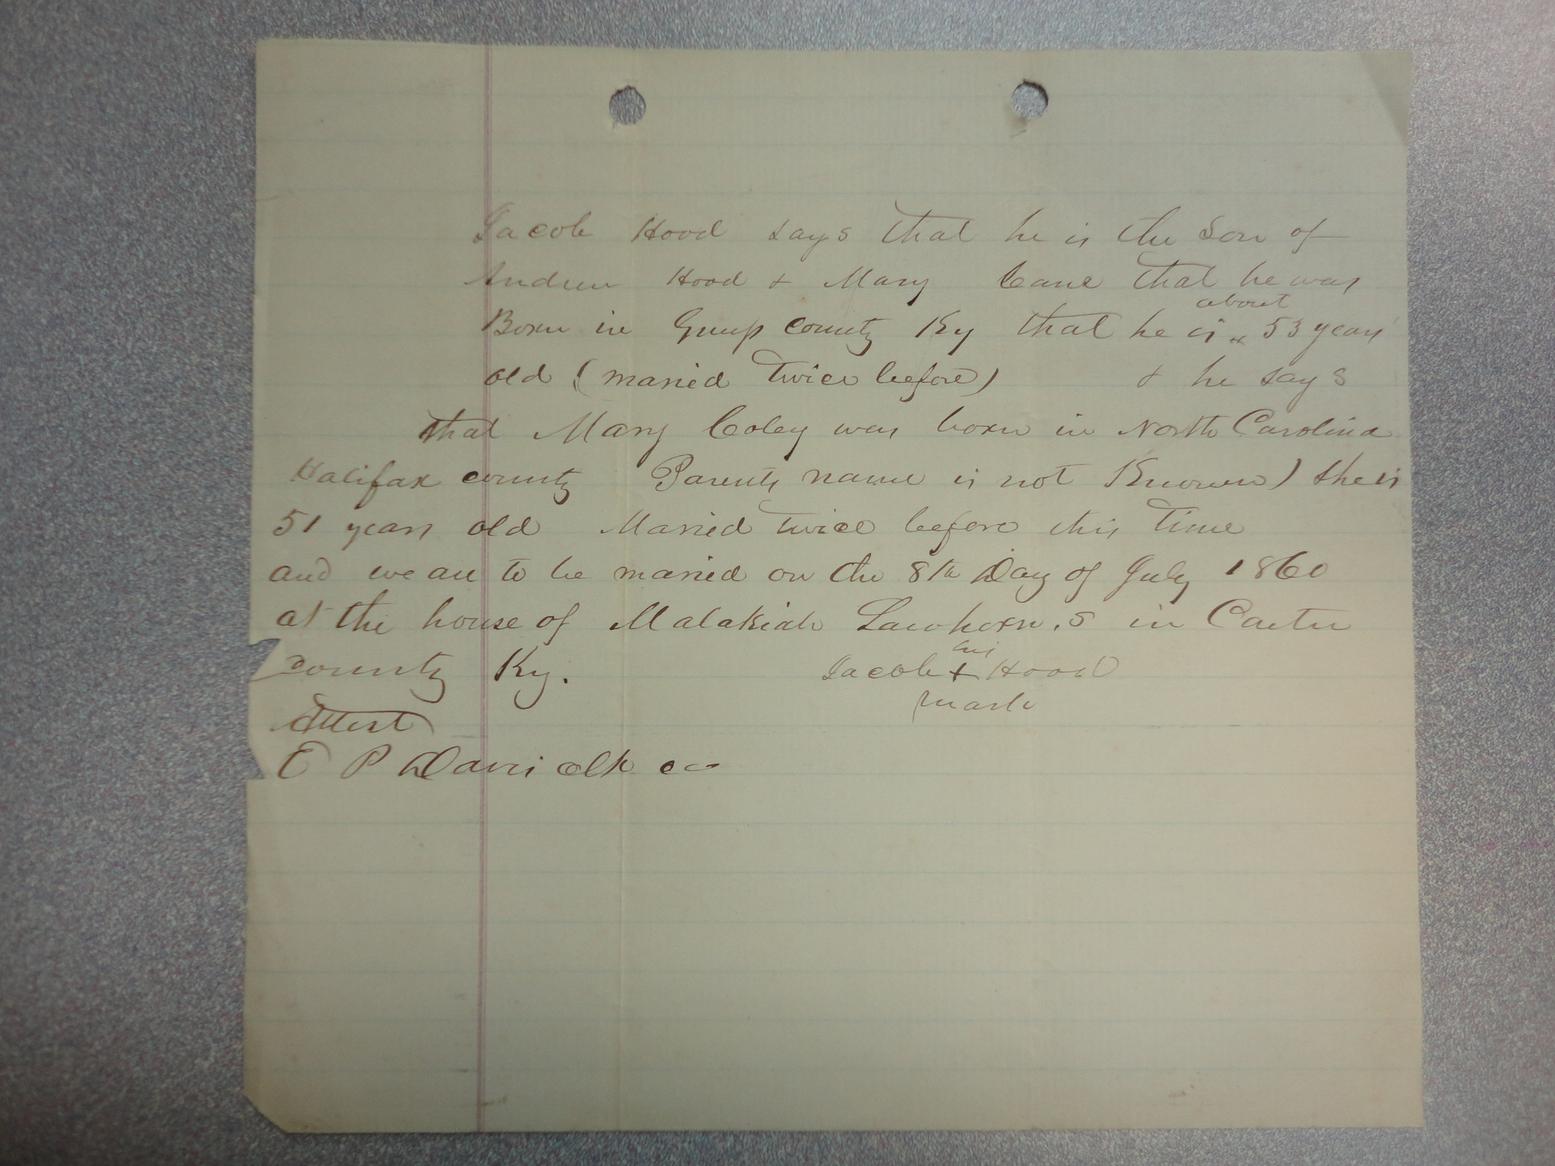 Jacob Hood says that he is the Son of
Andrew Hood & Mary Cane that he was
about
Born in Greup county Ky that he is ^ 53 years
old (maried Twice before) & he says
that Mary Coley was born in North Carolina
Halifax county Parents name is not Known) she is
51 years old Maried twice before this Time
and we are to be maried on the 8th Day of July 1860
at the house of Malakiah Lawhorn,s in Carter
county Ky.
his
Jacob + Hood
mark
Attest
E P Davis clk cc